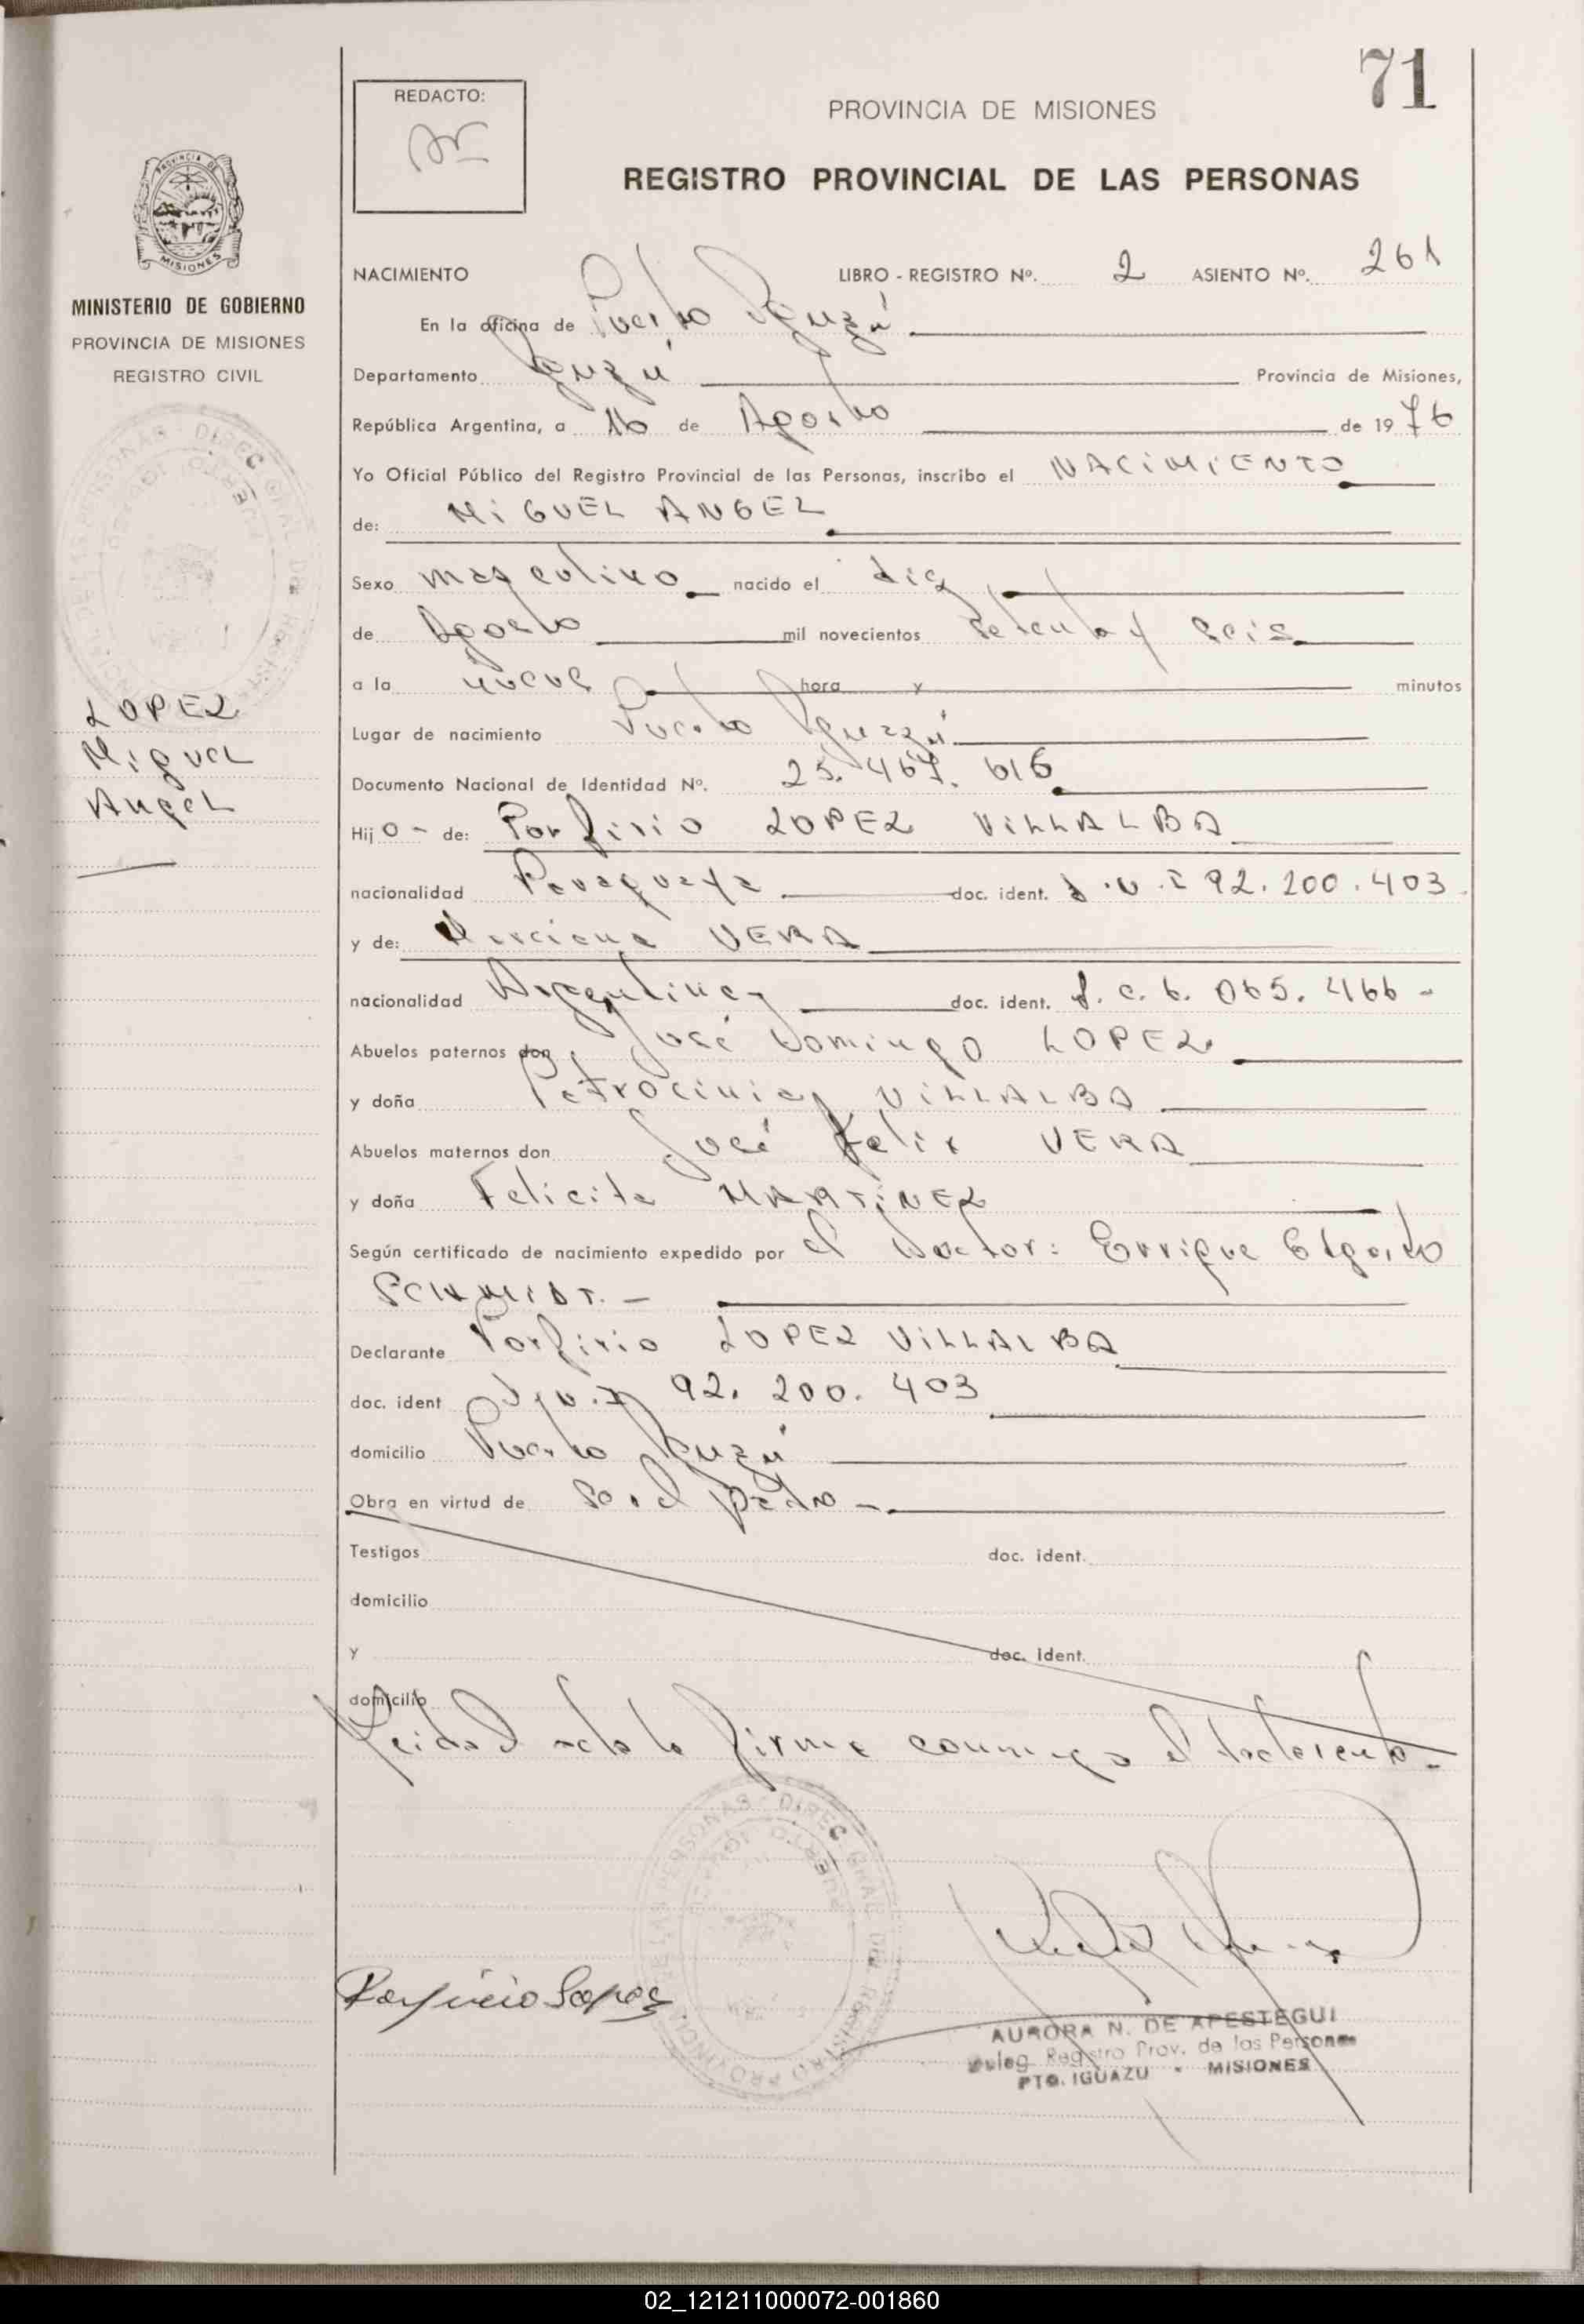 71
REDACTO:
PROVINCIA DE MISIONES
REGISTRO PROVINCIAL DE LAS PERSONAS
PROVINCIA DE
MISIONES
MINISTERIO DE GOBIERNO
PROVINCIA DE MISIONES
REGISTRO CIVIL
LOPEZ
Miguel
Angel
NACIMIENTO LIBRO - REGISTRO Nº. 2 ASIENTO Nº. 261
En la oficina de Puerto Iguazú
Departamento Iguazú Provincia de Misiones,
República Argentina, a 16 de Agosto de 1976
Yo Oficial Público del Registro Provincial de las Personas, inscribo el NACIMIENTO
de: MIGUEL ANGEL
Sexo masculino nacido el
de Agosto mil novecientos setenta y seis
a la nueve hora y minutos
Lugar de nacimiento Puerto Iguazú
Documento Nacional de Identidad Nº. 25.467.616
Hijo - de: Porfirio LOPEZ VILLALBA
nacionalidad Paraguaya doc. ident. D.N.I 92.200.403.
y de: Marciana VERA
nacionalidad Argentina doc. ident. L.C. 6.065.466-
Abuelos paternos don José Domingo LOPEZ
y doña Patrocinia VILLALBA
Abuelos maternos don José Felix VERA
y doña Felicita MARTINEZ
Según certificado de nacimiento expedido por el Doctor: Enrique Edgardo
SCHMIDT.-
Declarante Porfirio LOPEZ VILLALBA
doc. ident D.N.I 92.200.403
domicilio Puerto Iguazú
Obra en virtud de Ser el padre-
Testigos doc. ident.
domicilio
y doc. ident.
domicilio
Leida el acta la firma conmigo el declarante.-
Porfirio Lopez
AURORA N. DE APESTEGUI
Deleg. Registro Prov. de las Personas
PTO. IGUAZU - MISIONES
02_121211000072-001860